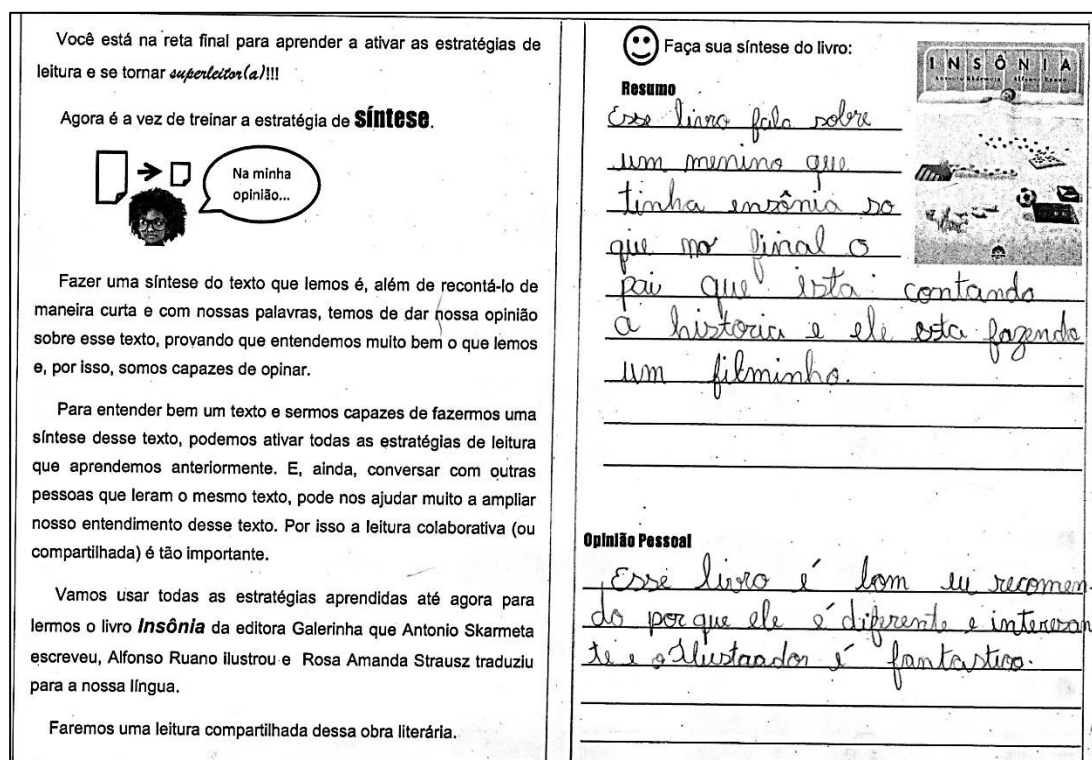 Você está na reta final para aprender a ativar as estratégias de
leitura e se tornar superleitor(a)!!!
Agora é a vez de treinar a estratégia de síntese.
Na minha
opinião...
Fazer uma síntese do texto que lemos é, além de recontá-lo de
maneira curta e com nossas palavras, temos de dar nossa opinião
sobre esse texto, provando que entendemos muito bem o que lemos
e, por isso, somos capazes de opinar.
Para entender bem um texto e sermos capazes de fazermos uma
síntese desse texto, podemos ativar todas as estratégias de leitura
que aprendemos anteriormente. E, ainda, conversar com outras
pessoas que leram o mesmo texto, pode nos ajudar muito a ampliar
nosso entendimento desse texto. Por isso a leitura colaborativa (ou
compartilhada) é tão importante.
Vamos usar todas as estratégias aprendidas até agora para
lermos o livro Insônia da editora Galerinha que Antonio Skarmeta
escreveu, Alfonso Ruano ilustrou e Rosa Amanda Strausz traduziu
para a nossa língua.
Faremos uma leitura compartilhada dessa obra literária.
Faça sua síntese do livro:
INSÔNIA
Resumo
Esse livro fala sobre
um menino que
tinha ensônia so
que no final o
pai que esta contando
a historia e ele esta fazendo
um filminho.
Opinião Pessoal
Esse livro é bom eu recomen-
do por que ele é diferente e interesan
te e o Ilustrador é fantastico.